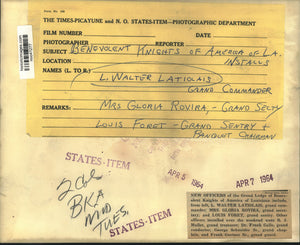 THE TIMES-PICAYUNE and N. O. STATES-ITEM—PHOTOGRAPHIC DEPARTMENT
FILM NUMBER
PHOTOGRAPHER REPORTER
SUBJECT BENEVOLENT KNIGHTS OF AMERICA OF LA.
LOCATION INSTALLS
NAMES (L. TO R.) L. WALTER LATIOLAIS
GRAND COMMANDER
REMARKS: MRS GLORIA ROVIRA, - GRAND SECTY
LOUIS FORET - GRAND SENTRY +
BANQUET CHAIRMAN
STATES-ITEM
APR 5 1964
APR 7 1964
2 col
BKA
TUES.
STATES-ITEM
NEW OFFICERS of the Grand Lodge of Benevolent
Knights of America of Louisiana include,
from left, L. WALTER LATIOLAIS, grand commander;
MRS. GLORIA ROVIRA, grand secretary;
and LOUIS FORET, grand sentry. Other
officers installed over the weekend were
grand trustee; Dr. Frank Gallo, grand